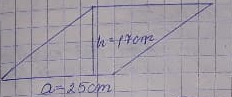 h=17cm
a=25cm